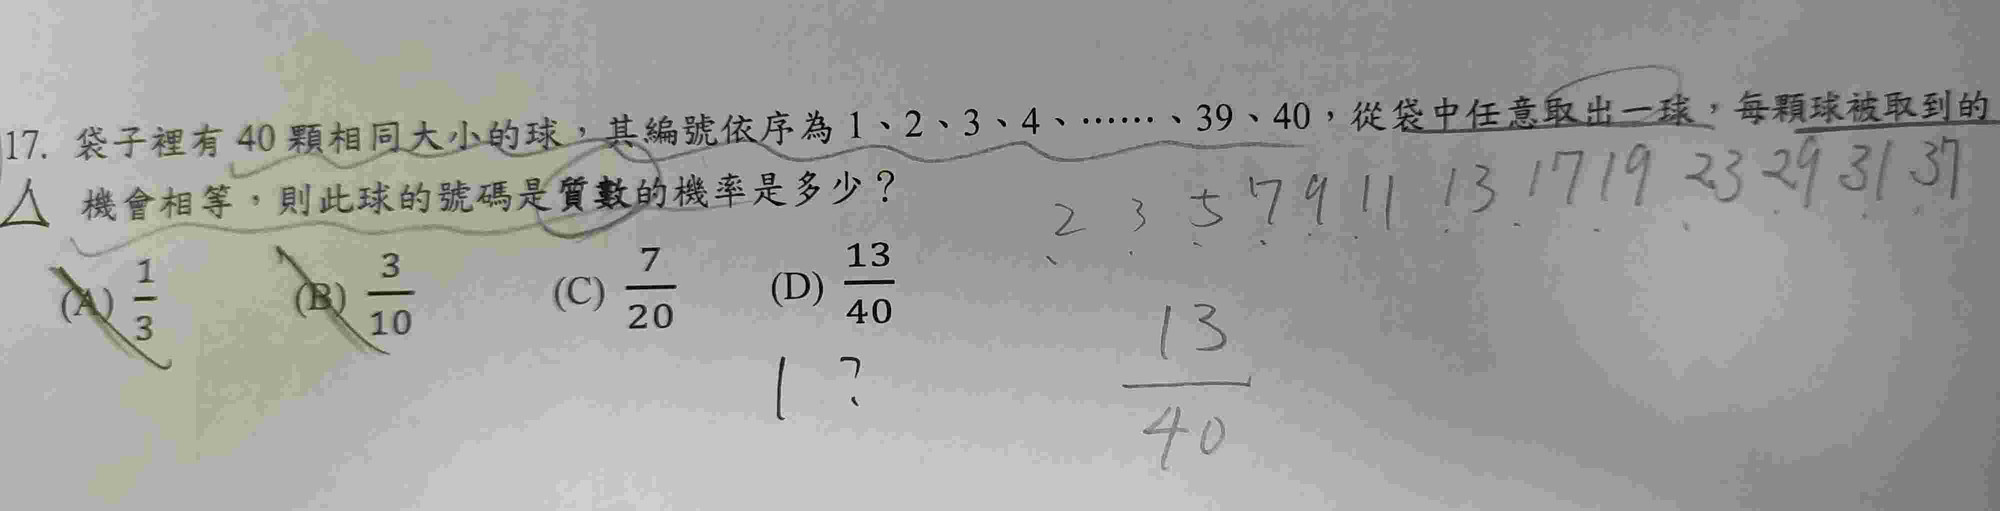 17. 袋子裡有 40 顆相同大小的球，其編號依序為 1、2、3、4、……、39、40，從袋中任意取出一球，每顆球被取到的
△ 機會相等，則此球的號碼是質數的機率是多少？
2 3 5 7 9 11 13 17 19 23 29 31 37
(A) 1/3 (B) 3/10 (C) 7/20 (D) 13/40
1 ?
13/40